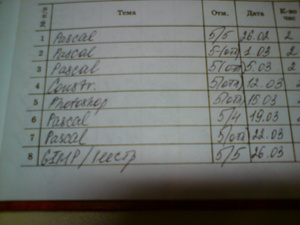 № п/п Тема Отм. Дата К-во час
1 Pascal 5/5 26.02 2
2 Pascal 5(отл) 1.03 2
3 Pascal 5(отл) 5.03 2
4 5(отл) 12.03 2
5 Photoshop 5(отл) 15.03
6 Pascal 5/4 19.03 2
7 Pascal 5(отл) 22.03
8 GIMP/реестр 5/5 26.03